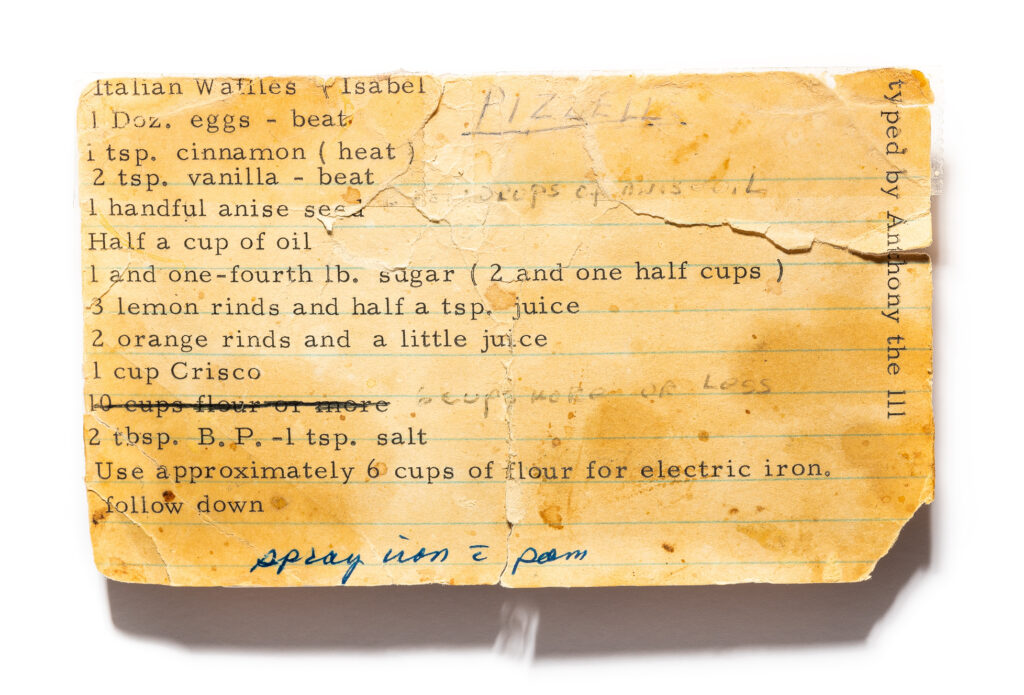 Italian Waffles - Isabel
PIZZELL.
1 Doz. eggs - beat.
1 tsp. cinnamon ( heat )
2 tsp. vanilla - beat
DROPS OF ANISE OIL
1 handful anise seed
Half a cup of oil
1 and one-fourth lb. sugar ( 2 and one half cups )
3 lemon rinds and half a tsp. juice
2 orange rinds and a little juice
1 cup Crisco
10 cups flour or more
6 CUPS MORE OR LESS
2 tbsp. B. P. -1 tsp. salt
Use approximately 6 cups of flour for electric iron.
follow down
spray iron c̄ pam
typed by Anthony the III